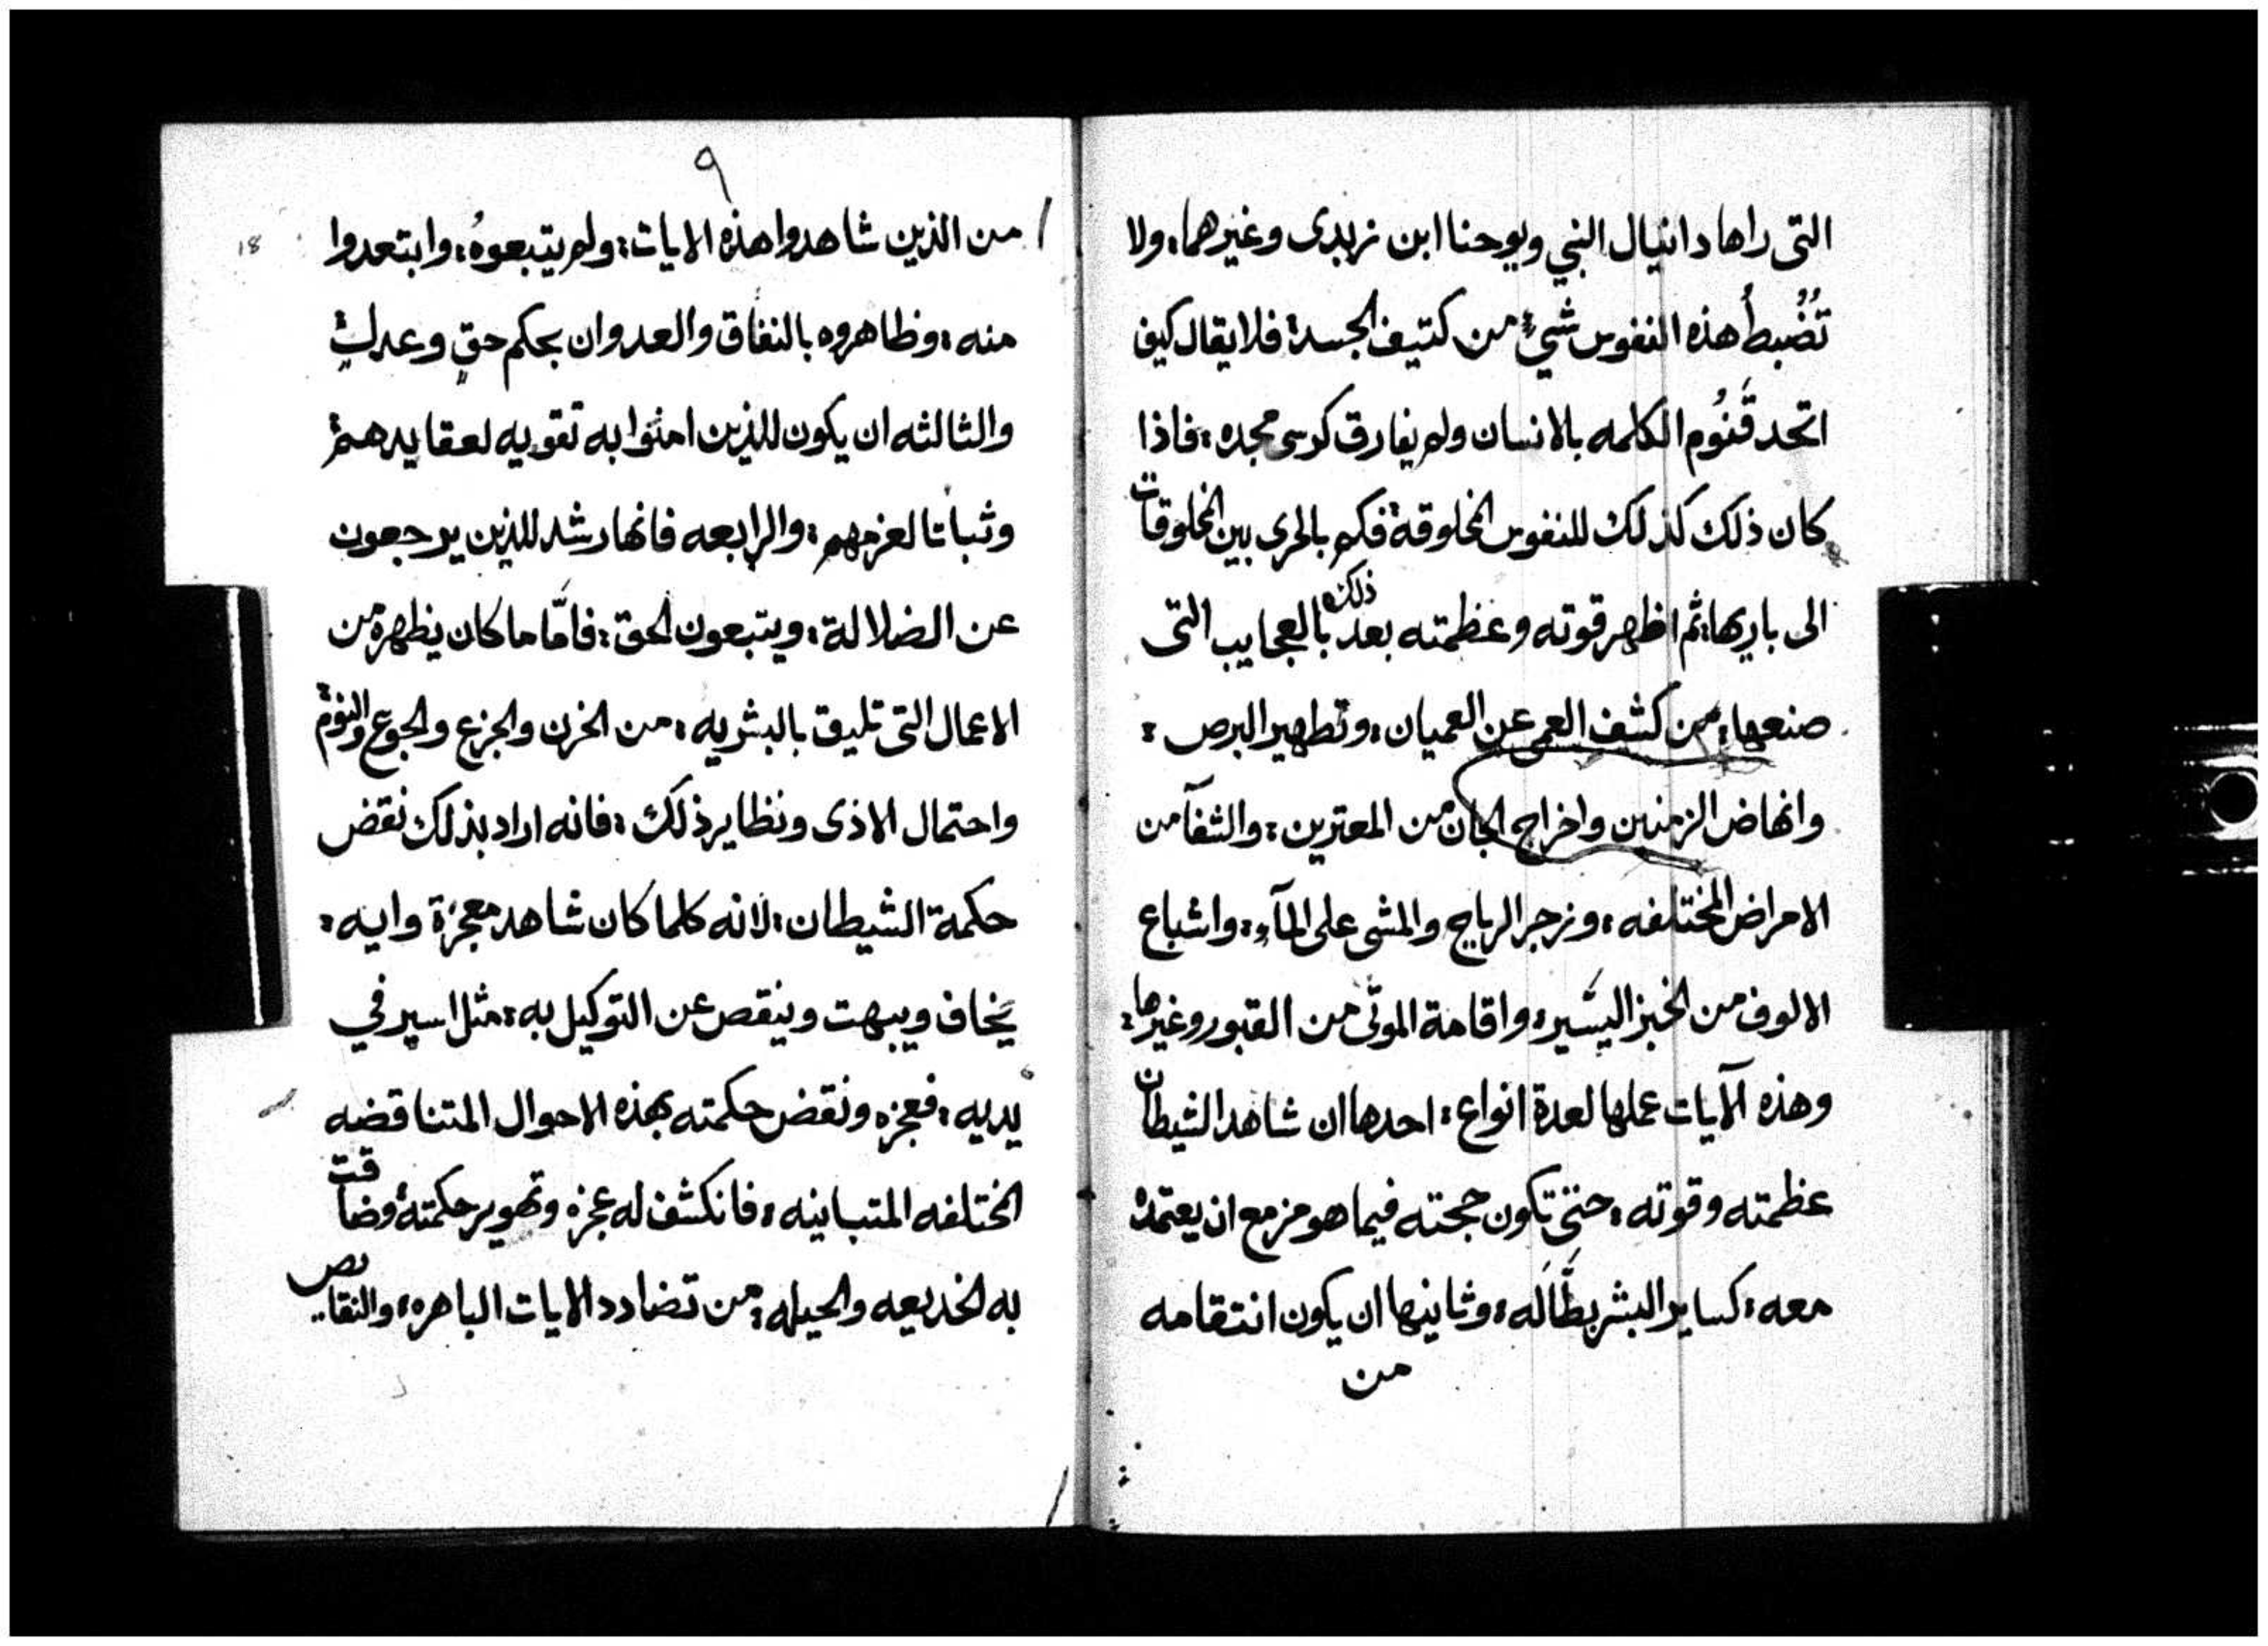 التى راها دانيال النبي ويوحنا ابن زبدى وغيرهما: ولا
تُضبطُ هذه النفوس شيءٌ من كتيف الجسد: فلا يقال كيف
اتحد قَنُوم الكلمه بالانسان ولم يفارق كرسى مجده: فاذا
كان ذلك كذلك للنفوس المخلوقة: فكم بالحرى بين المخلوقات
الى باريها: ثم اظهر قوته وعظمته بعد ذلك بالعجايب التى
صنعها: من كشف العمى عن العميان: وتطهير البرص:
وانهاض الزمنين واخراج الجان من المعترين: والشفآ من
الامراض المختلفه: وزجر الرياح والمشى على المآءِ: واشباع
الالوف من الخبز اليَسير: واقامة الموتى من القبور وغيرها:
وهذه الآيات عملها لعدة انواع: احدها ان شاهد الشيطان
عظمته وقوته: حتى تكون حجته فيما هو مزمع ان يعتمده
معه: كساير البشر بطَّالَه: وثانيها ان يكون انتقامه
من
٩
18
من الذين شاهدوا هذه الايات: ولم يتبعوهُ: وابتعدوا
منه: وظاهروه بالنفاق والعدوان بحكم حقٍ وعدلٍ:
والثالثه ان يكون للذين امنوا به تقويه لعقايدهم:
وثباتا لعزمهم: والرابعه فانها رشد للذين يرجعون
عن الضلالة: ويتبعون الحق: فامَّا ما كان يظهره من
الاعمال التى تليق بالبشريه: من الحزن والجزع والجوع والنوم:
واحتمال الاذى ونظاير ذلك: فانه اراد بذلك نقض
حكمة الشيطان: لانه كلما كان شاهد معجزة وايه:
يخاف ويبهت وينقص عن التوكيل به: مثل اسير في
يديه: فعجزه ونقض حكمته بهذه الاحوال المتناقضه
المختلفه المتباينه: فانكشف له عجزه وتهوير حكمته: وضاقت
به الخديعه والحيله: من تضادد الايات الباهره: والنقايص